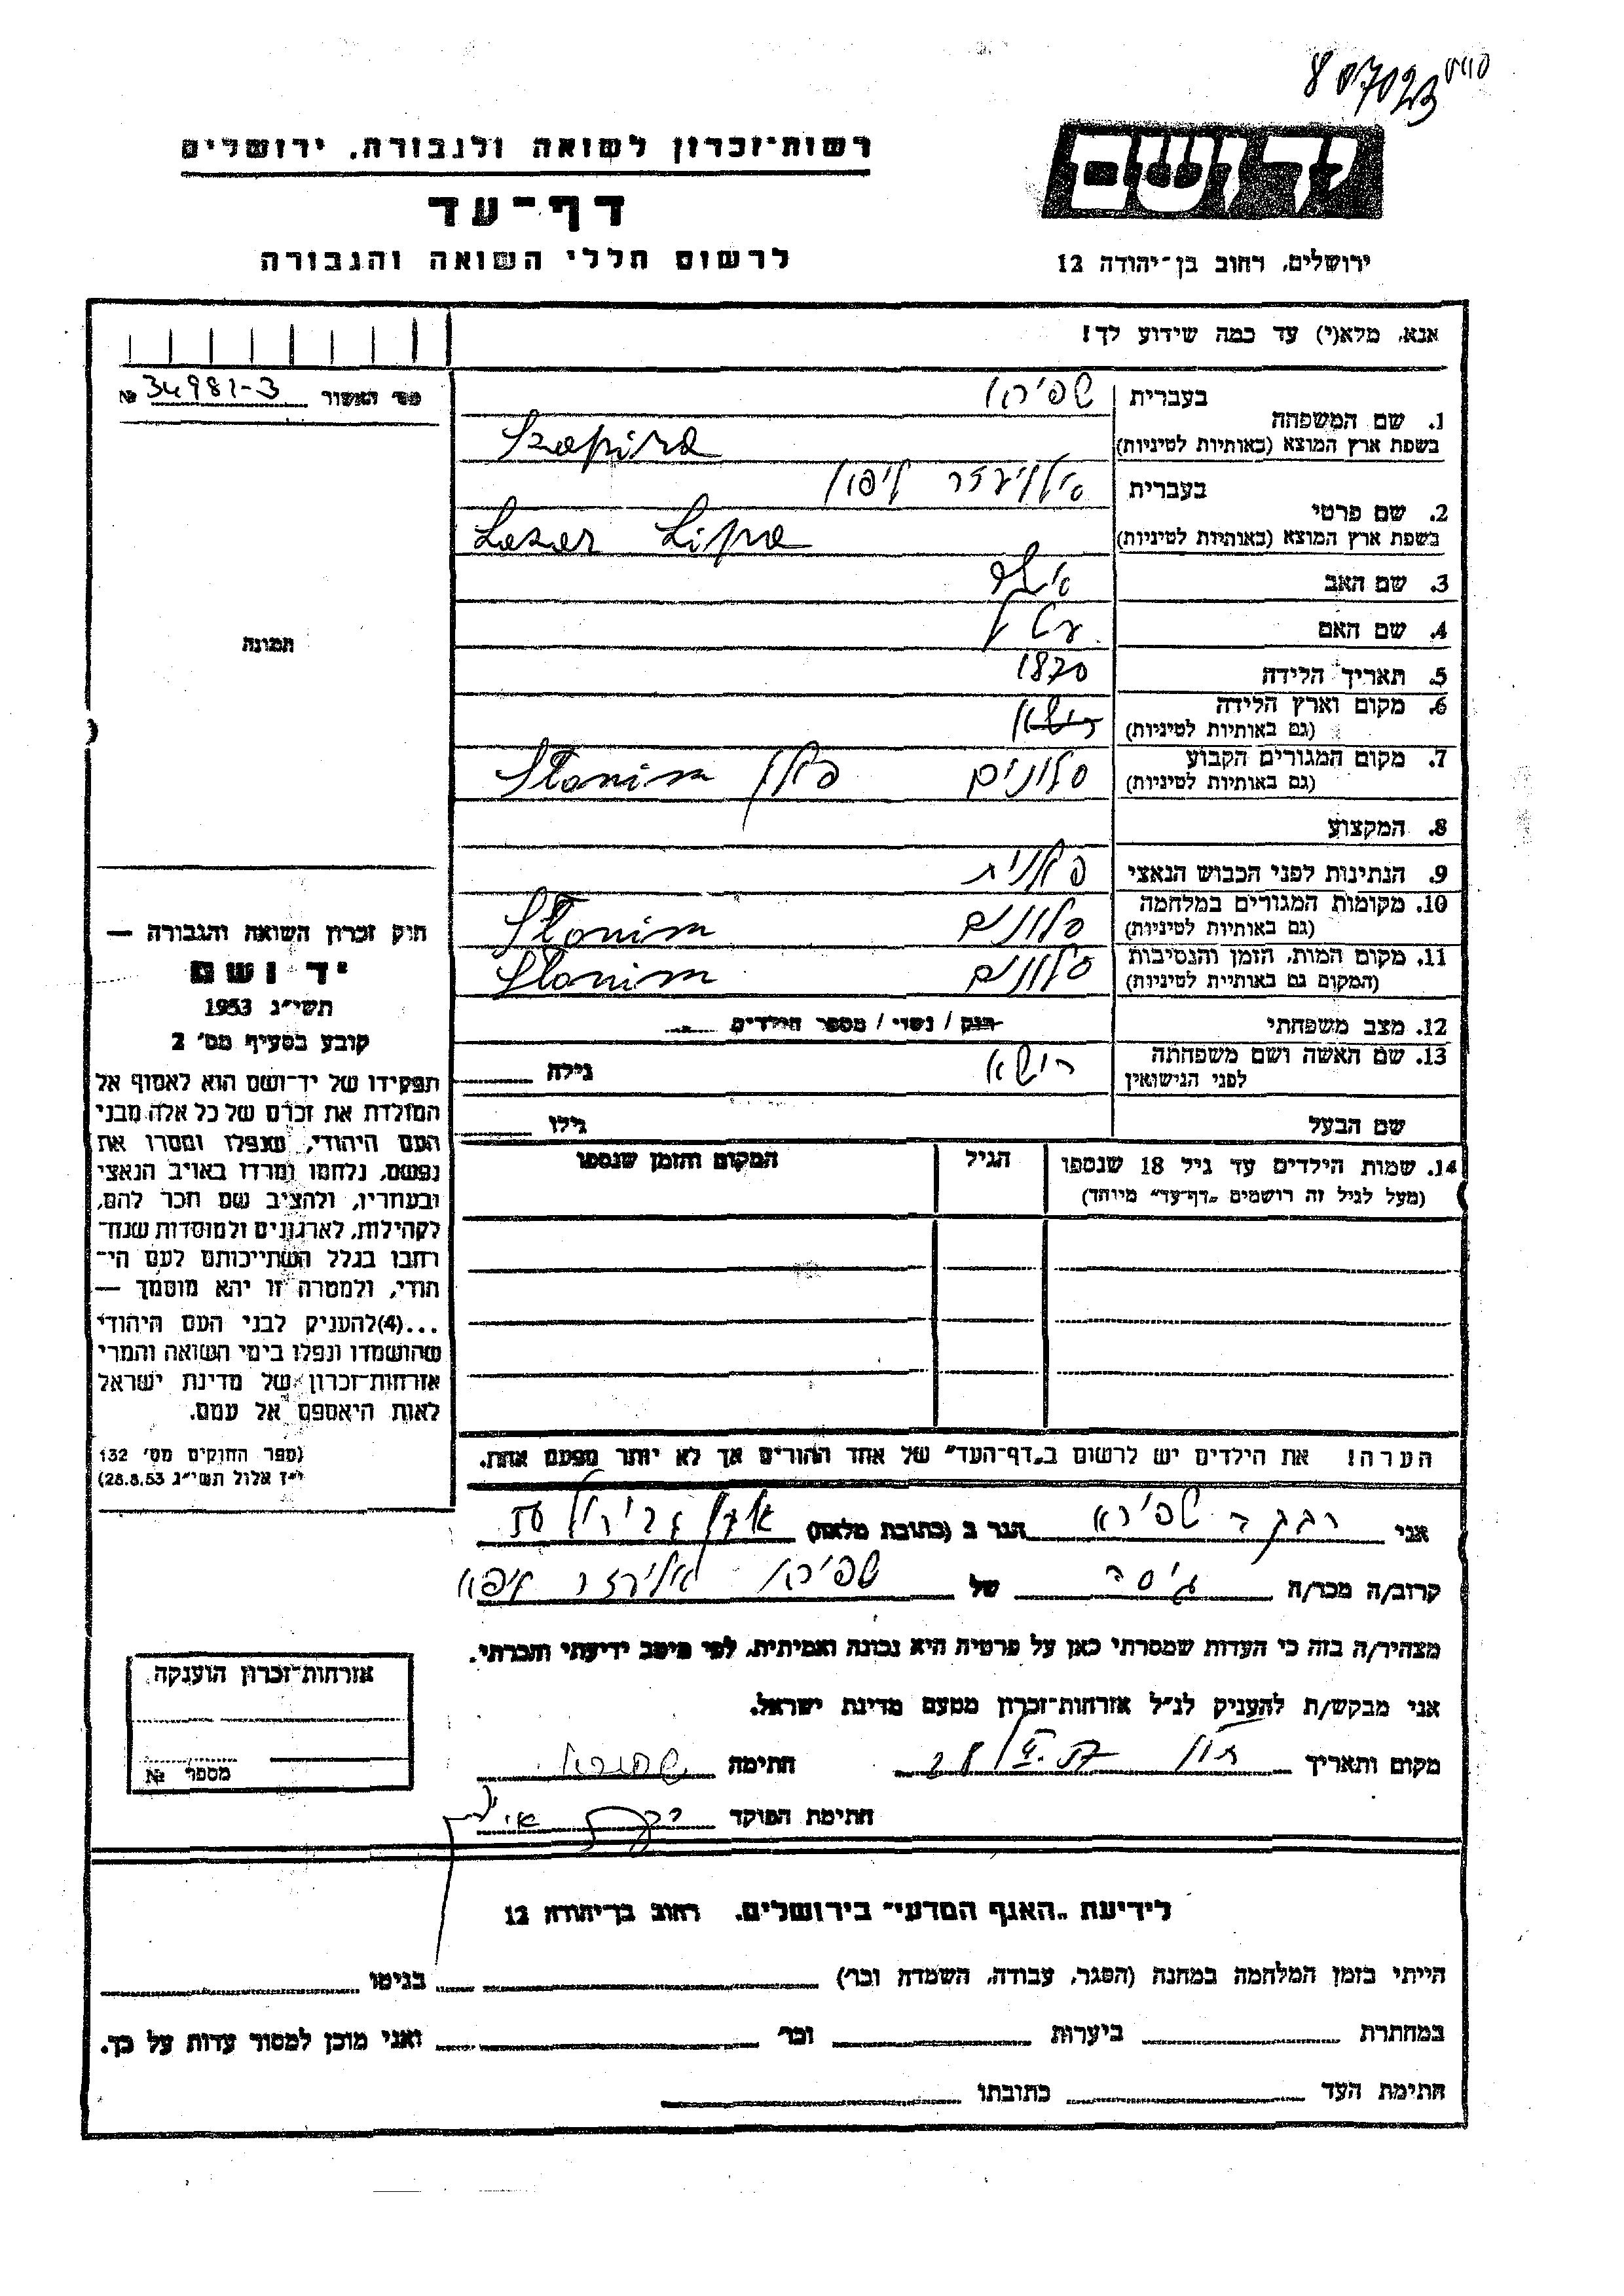 807023
יד ושם
ירושלים, רחוב בן־יהודה 12
רשות־זכרון לשואה ולגבורה, ירושלים
דף־עד
לרשום חללי השואה והגבורה
אנא, מלא(י) עד כמה שידוע לך!
מס׳ האשור № 34981-3
תמונה
בעברית שפירא
1. שם המשפחה
בשפת ארץ המוצא (באותיות לטיניות) Szapira
בעברית אליעזר ליפא
2. שם פרטי
בשפת ארץ המוצא (באותיות לטיניות) Lazar Lipa
3. שם האב
4. שם האם
5. תאריך הלידה 1870
6. מקום וארץ הלידה
(גם באותיות לטיניות)
7. מקום המגורים הקבוע סלונים פולין Slonim
(גם באותיות לטיניות)
8. המקצוע
9. הנתינות לפני הכבוש הנאצי פולנית
10. מקומות המגורים במלחמה סלונים Slonim
(גם באותיות לטיניות)
11. מקום המות, הזמן והנסיבות סלונים Slonim
(המקום גם באותיות לטיניות)
12. מצב משפחתי רווק / נשוי / מספר הילדים
13. שם האשה ושם משפחתה רישא גילה
לפני הנישואין
שם הבעל גילו
14. שמות הילדים עד גיל 18 שנספו הגיל המקום והזמן שנספו
(מעל לגיל זה רושמים „דף־עד״ מיוחד)
הערה! את הילדים יש לרשום ב„דף־העד״ של אחד ההורים אך לא יותר מפעם אחת.
חוק זכרון השואה והגבורה —
יד ושם
תשי״ג 1953
קובע בסעיף מס׳ 2
תפקידו של יד־ושם הוא לאסוף אל
המולדת את זכרם של כל אלה מבני
העם היהודי, שנפלו ומסרו את
נפשם, נלחמו ומרדו באויב הנאצי
ובעוזריו, ולהציב שם וזכר להם,
לקהילות, לארגונים ולמוסדות שנח־
רבו בגלל השתייכותם לעם הי־
הודי, ולמטרה זו יהא מוסמך —
...(4)להעניק לבני העם היהודי
שהושמדו ונפלו בימי השואה והמרי
אזרחות־זכרון של מדינת ישראל
לאות היאספם אל עמם.
(ספר החוקים מס׳ 132
י״ז אלול תשי״ג 28.8.53)
אני רבקה שפירא הגר ב (כתובת מלאה)
קרוב/ה מכר/ה גיסה של שפירא אליעזר ליפא
מצהיר/ה בזה כי העדות שמסרתי כאן על פרטיה היא נכונה ואמיתית, לפי מיטב ידיעתי והכרתי.
אני מבקש/ת להעניק לנ״ל אזרחות־זכרון מטעם מדינת ישראל.
מקום ותאריך חתימה שפירא
חתימת הפוקד
אזרחות־זכרון הוענקה
מספר №
לידיעת „האגף המדעי״ בירושלים, רחוב בן־יהודה 12
הייתי בזמן המלחמה במחנה (הסגר, עבודה, השמדה וכר) בגיטו
במחתרת ביערות וכר ואני מוכן למסור עדות על כך.
חתימת העד כתובתו